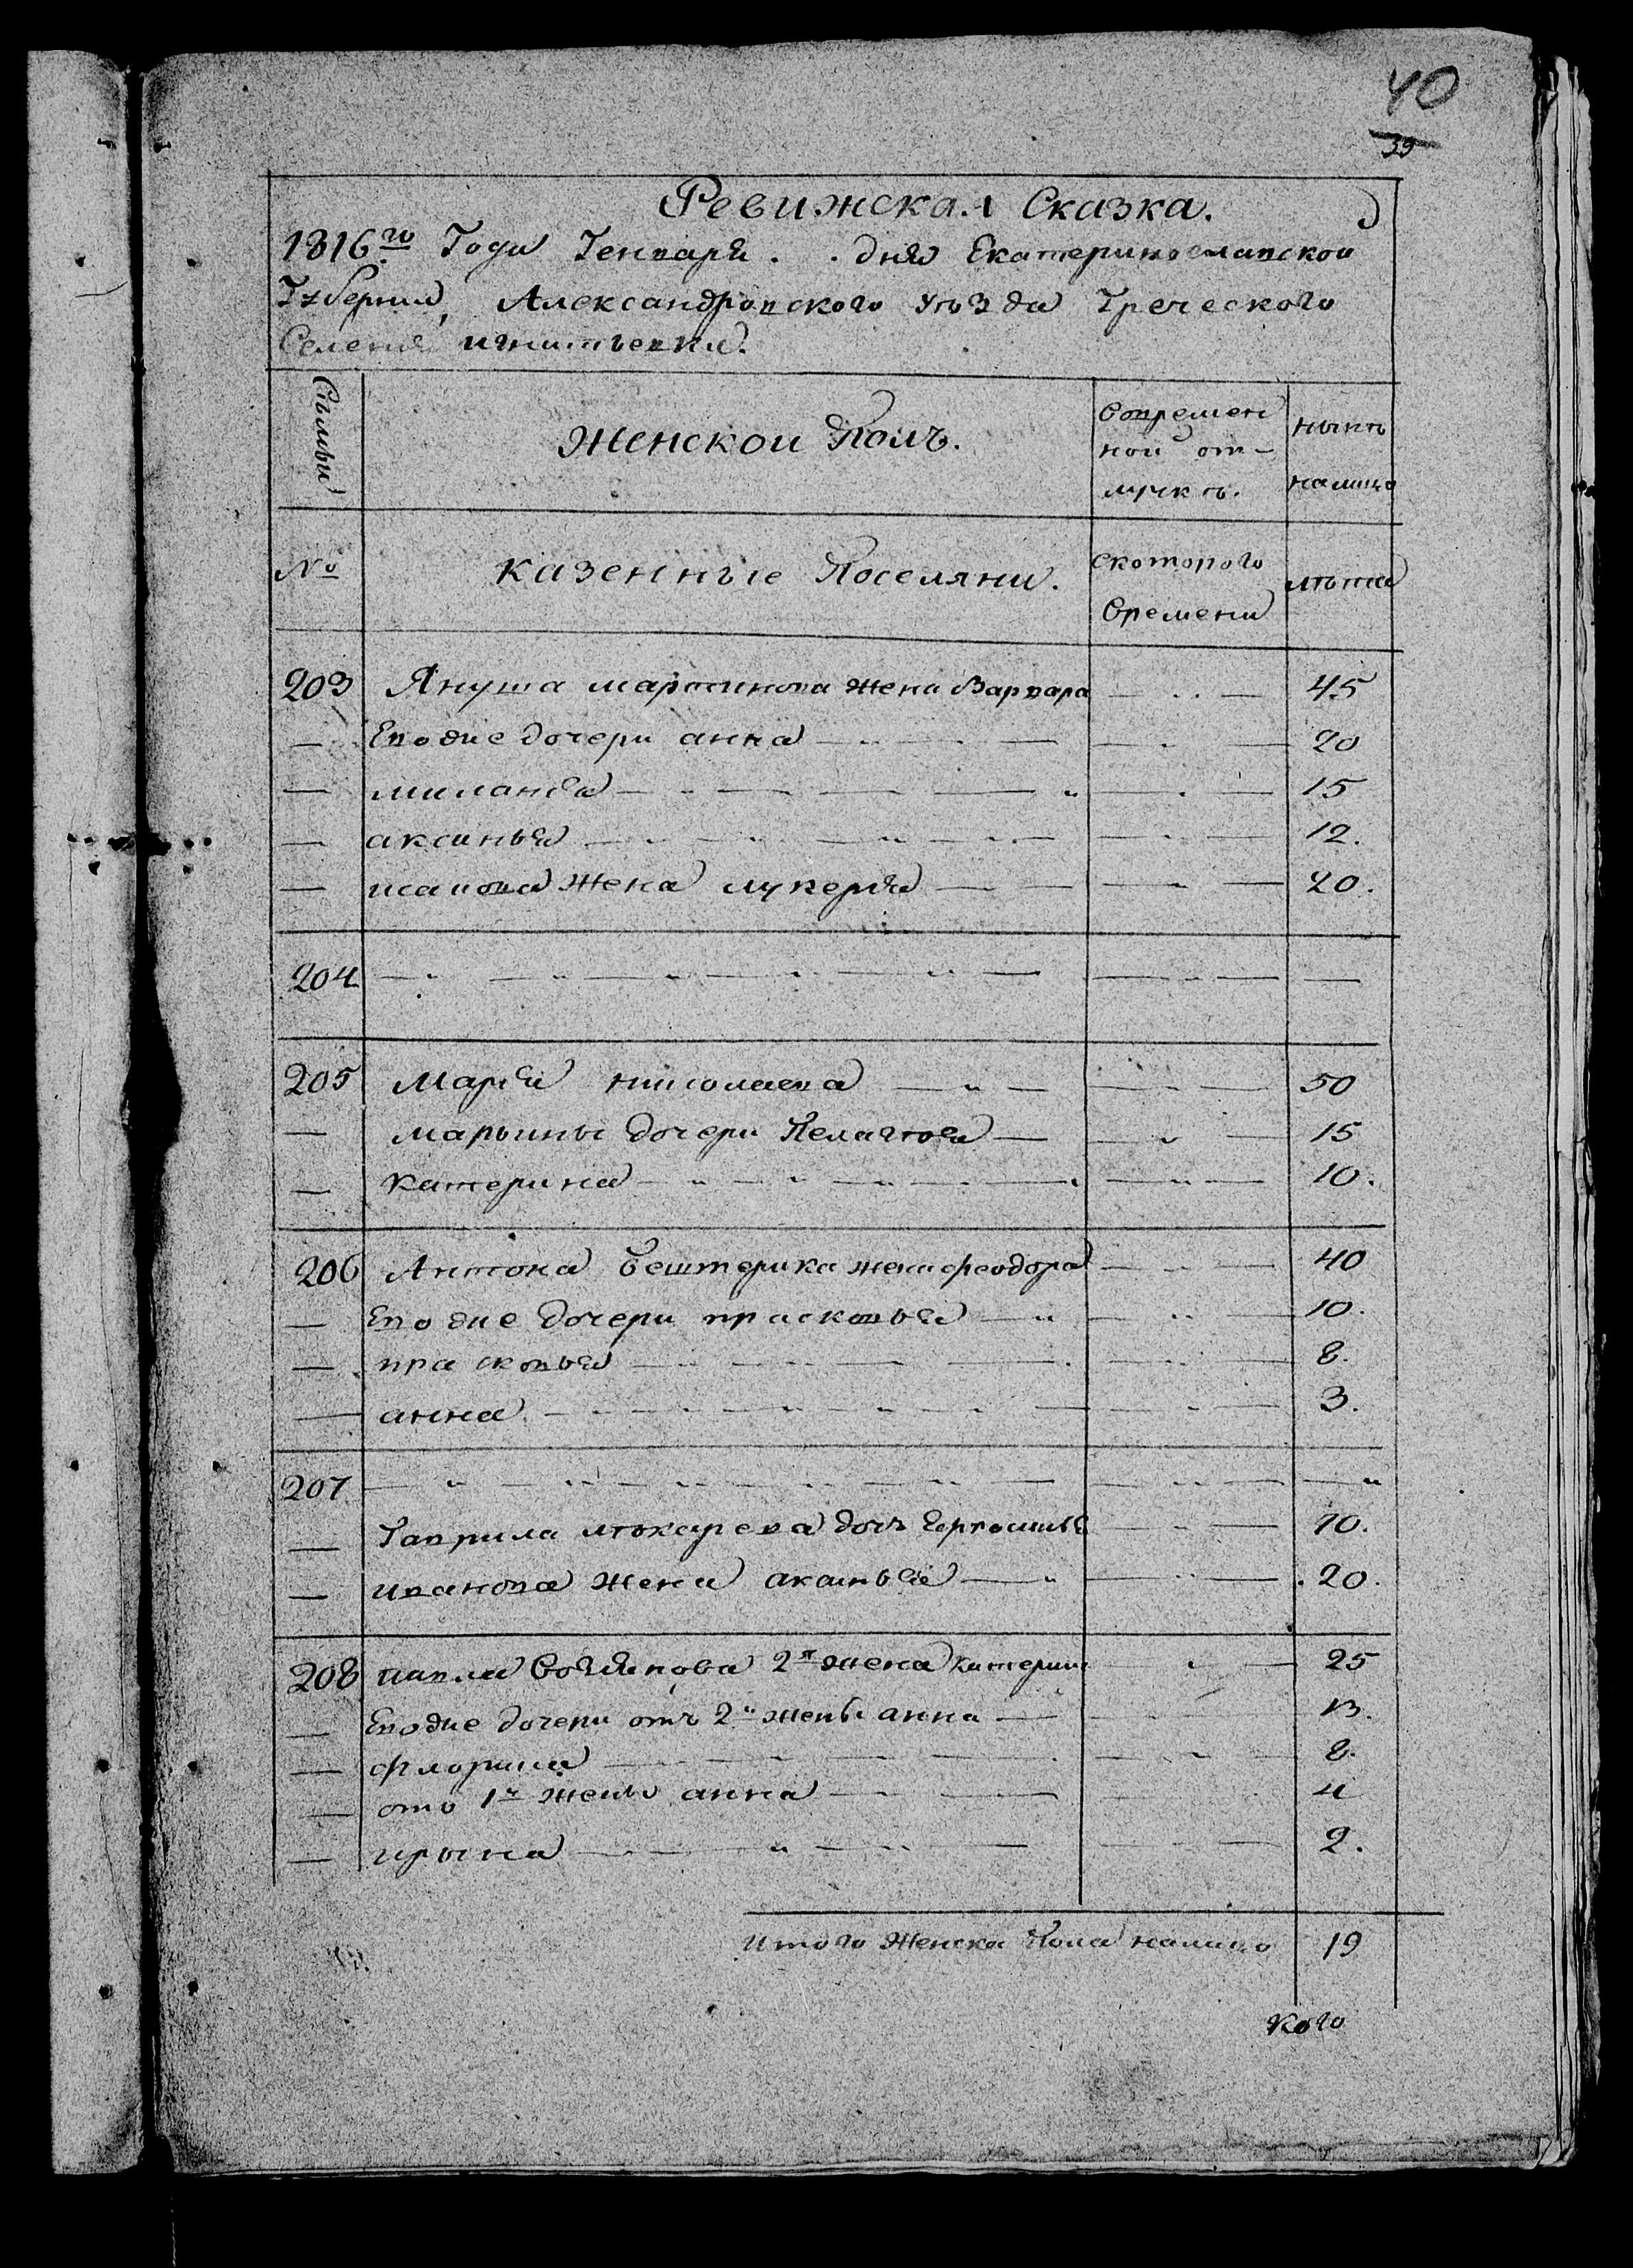 40
39
Ревижская Сказка.
1816го Года Генваря . . дня Екатеринославской
Губернии, Александровского уѣзда Греческого
Селения игнатьевки.
Семьи
Женской Полъ.
Вовремен
ной от-
лучкѣ.
нынѣ
налицо
№
казенные Поселяни.
скоторого
Времени
лѣта
203 Януша маротинова жена Варвара 45
Евоdie дочери анна 20
миланія 15
аксинья 12.
жена лукерія 20.
204
205 Марія николаева 50
марьины дочери Пелагѣя 15
катерина 10.
206 Антона Бештерика жена феодора 40
Евоdie дочери прасковья 10.
прасковья 8.
анна 3.
207
Гаврила дочь 10.
иванова жена аксинья 20.
208 павла 2я жена катерина 25
Евоdie дочери отъ 2й жены анна 13.
8.
ото 1й жены анна 4
ирына 2.
итого Женска Пола налицо 19
Кого